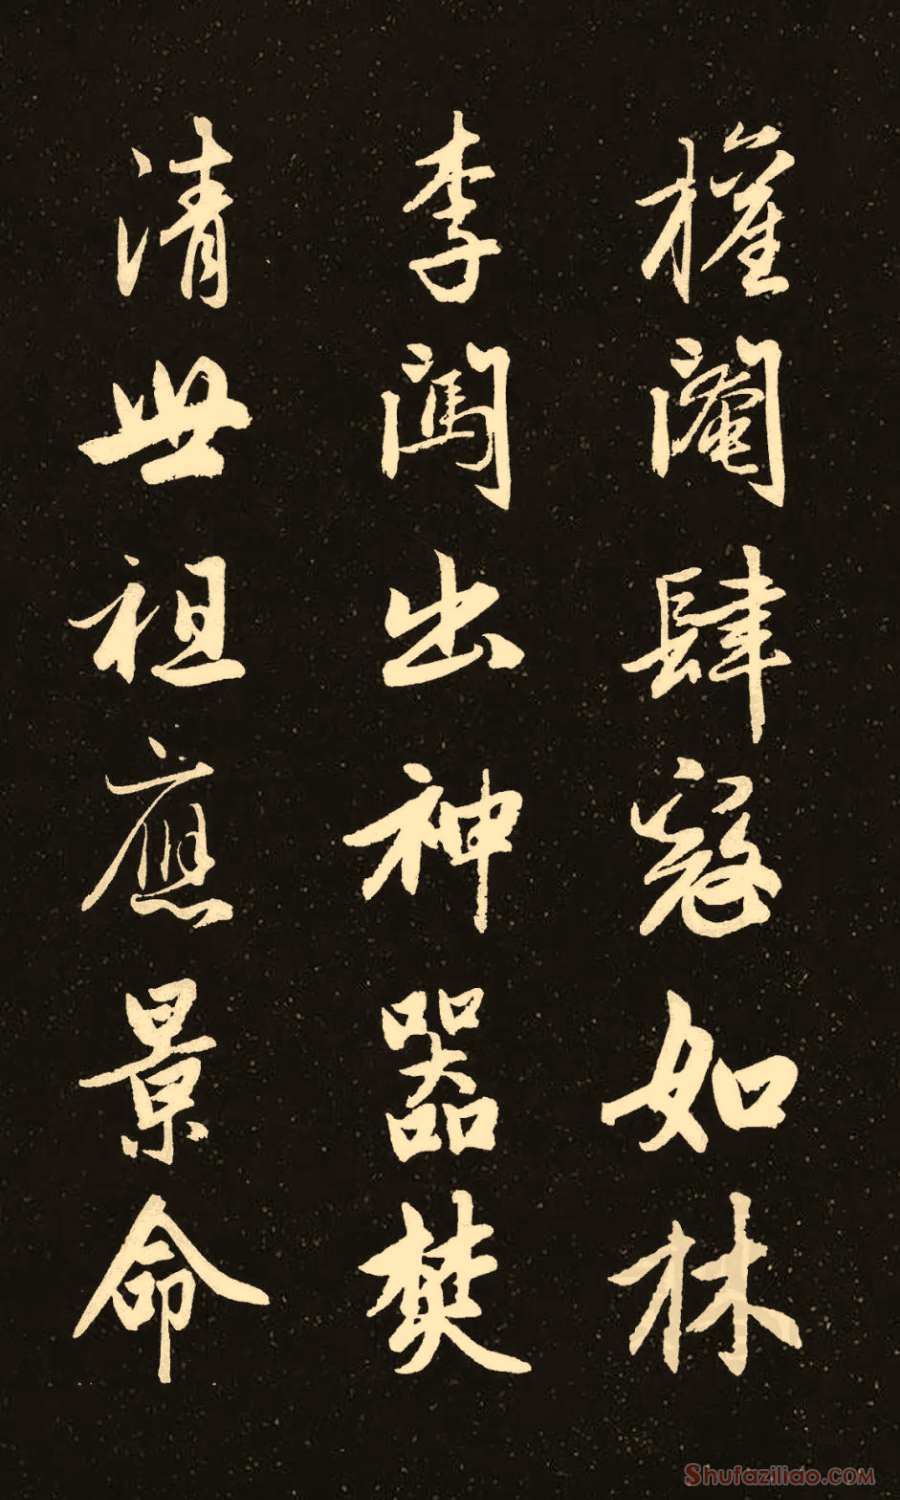 權閹肆寇如林
李闖出神器焚
清世祖應景命
Shufaziliao.COM